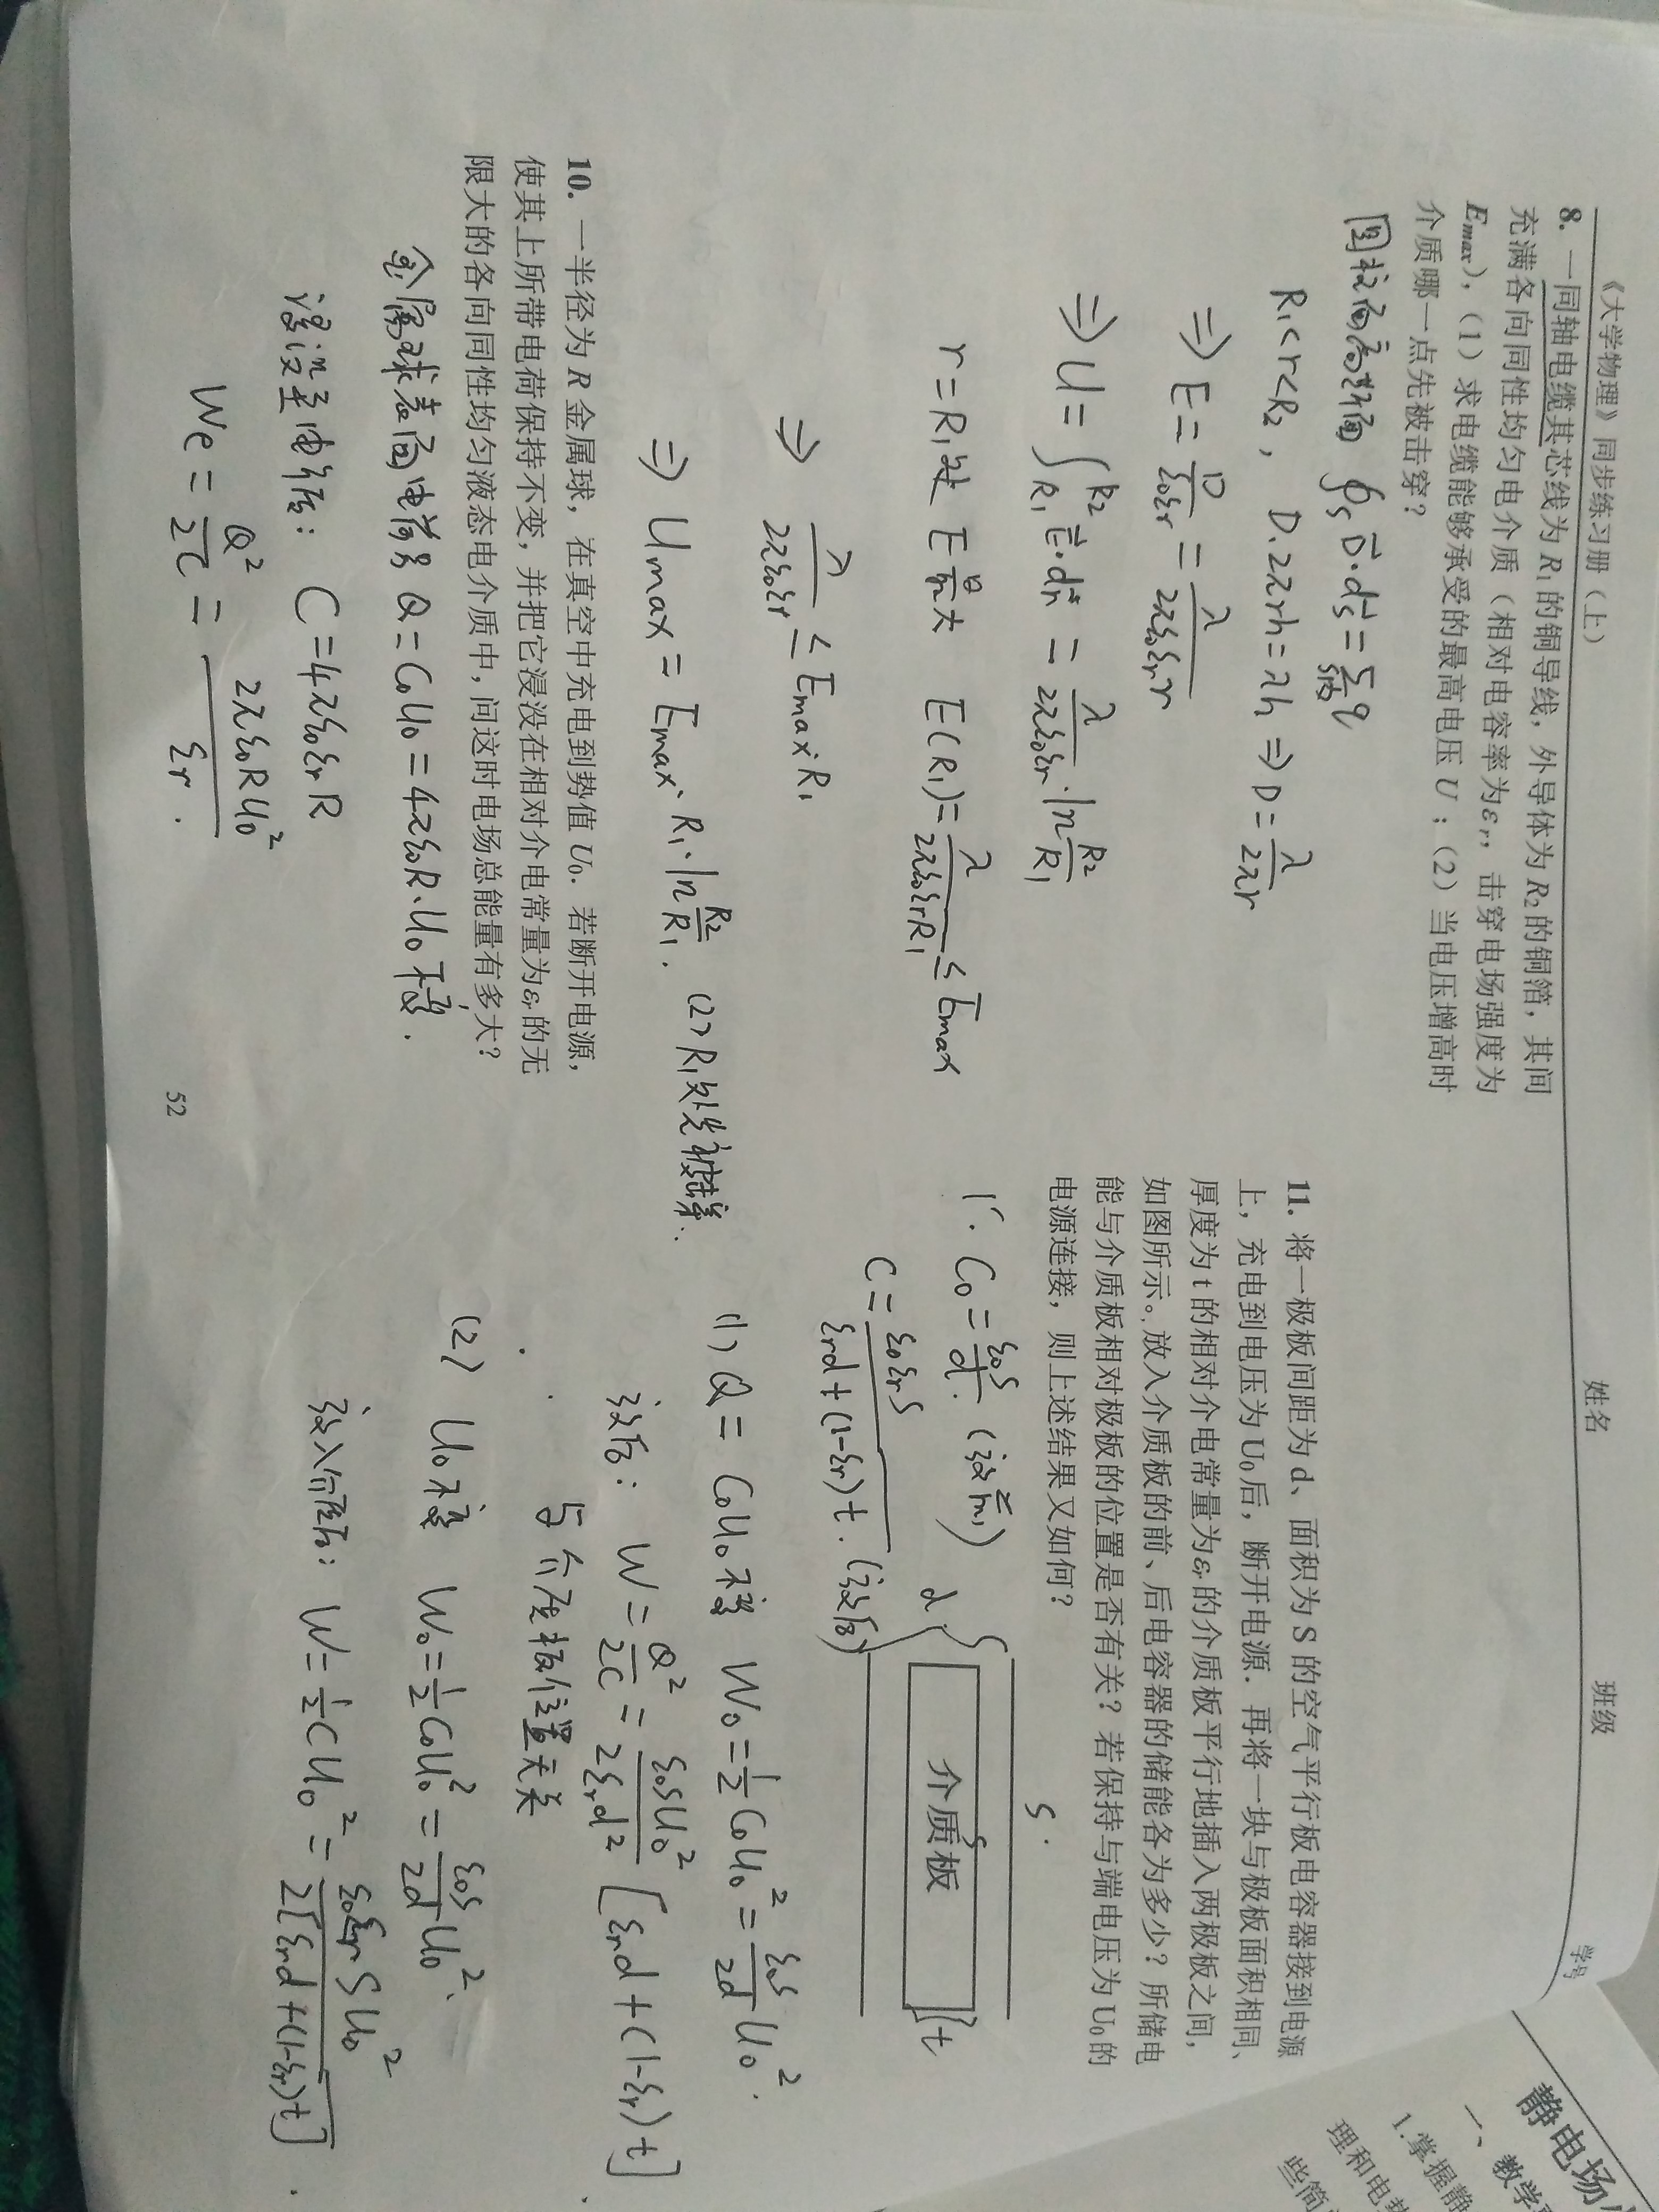 《大学物理》同步练习册（上） 姓名 班级 学号
8. 一同轴电缆其芯线为R₁的铜导线，外导体为R₂的铜箔，其间
充满各向同性均匀电介质（相对电容率为εr，击穿电场强度为
Emax），（1）求电缆能够承受的最高电压U；（2）当电压增高时
介质哪一点先被击穿？
圆柱面高斯面 ∮s D⃗·ds⃗ = Σ q
S内
R₁<r<R₂， D·2πrh=λh ⇒ D=λ/2πr
⇒ E = D/ε₀εr = λ/2πε₀εr r
⇒ U = ∫R₁^R₂ E⃗·dr⃗ = λ/2πε₀εr · ln R₂/R₁
r=R₁处 E最大 E(R₁)= λ/2πε₀εrR₁ ≤ Emax
⇒ λ/2πε₀εr ≤ Emax·R₁
⇒ Umax = Emax·R₁·ln R₂/R₁. (2) R₁处先被击穿.
10. 一半径为 R 金属球，在真空中充电到势值 U₀. 若断开电源，
使其上所带电荷保持不变，并把它浸没在相对介电常量为εr的无
限大的各向同性均匀液态电介质中，问这时电场总能量有多大？
金属球表面电荷 Q=C₀U₀=4πε₀R·U₀ 不变.
浸没至电介质： C=4πε₀εrR
We = Q²/2C = 2πε₀RU₀²/εr .
52
11. 将一极板间距为 d、面积为 S 的空气平行板电容器接到电源
上，充电到电压为 U₀后，断开电源. 再将一块与极板面积相同、
厚度为 t 的相对介电常量为εr的介质板平行地插入两极板之间，
如图所示。. 放入介质板的前、后电容器的储能各为多少？所储电
能与介质板相对极板的位置是否有关？若保持与端电压为 U₀的
电源连接，则上述结果又如何？
S.
C₀ = ε₀S/d. (放前)
d
介质板
S
t
C = ε₀εrS/εrd+(1-εr)t. (放后)
(1) Q = C₀U₀ 不变 W₀=½C₀U₀²=ε₀S/2d U₀².
放后： W = Q²/2C = ε₀SU₀²/2εrd² [εrd+(1-εr)t]
与介质板位置无关
(2) U₀不变 W₀=½C₀U₀²=ε₀S/2d U₀²、
放入介质后： W=½CU₀²=ε₀εrSU₀²/2[εrd+(1-εr)t] .
静电场
一、教学
1.掌握静
理和电势
些简